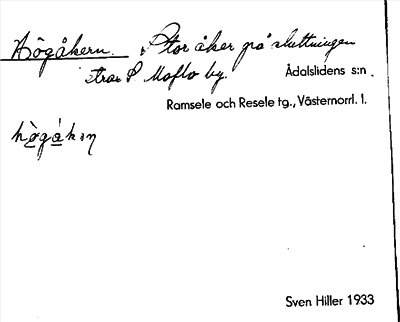 Högåkern. Stor åker på sluttningen
strax S Moflo by. Ådalslidens s:n.
Ramsele och Resele tg., Västernorrl. l.
hö̀gǻkəṇ
Sven Hiller 1933